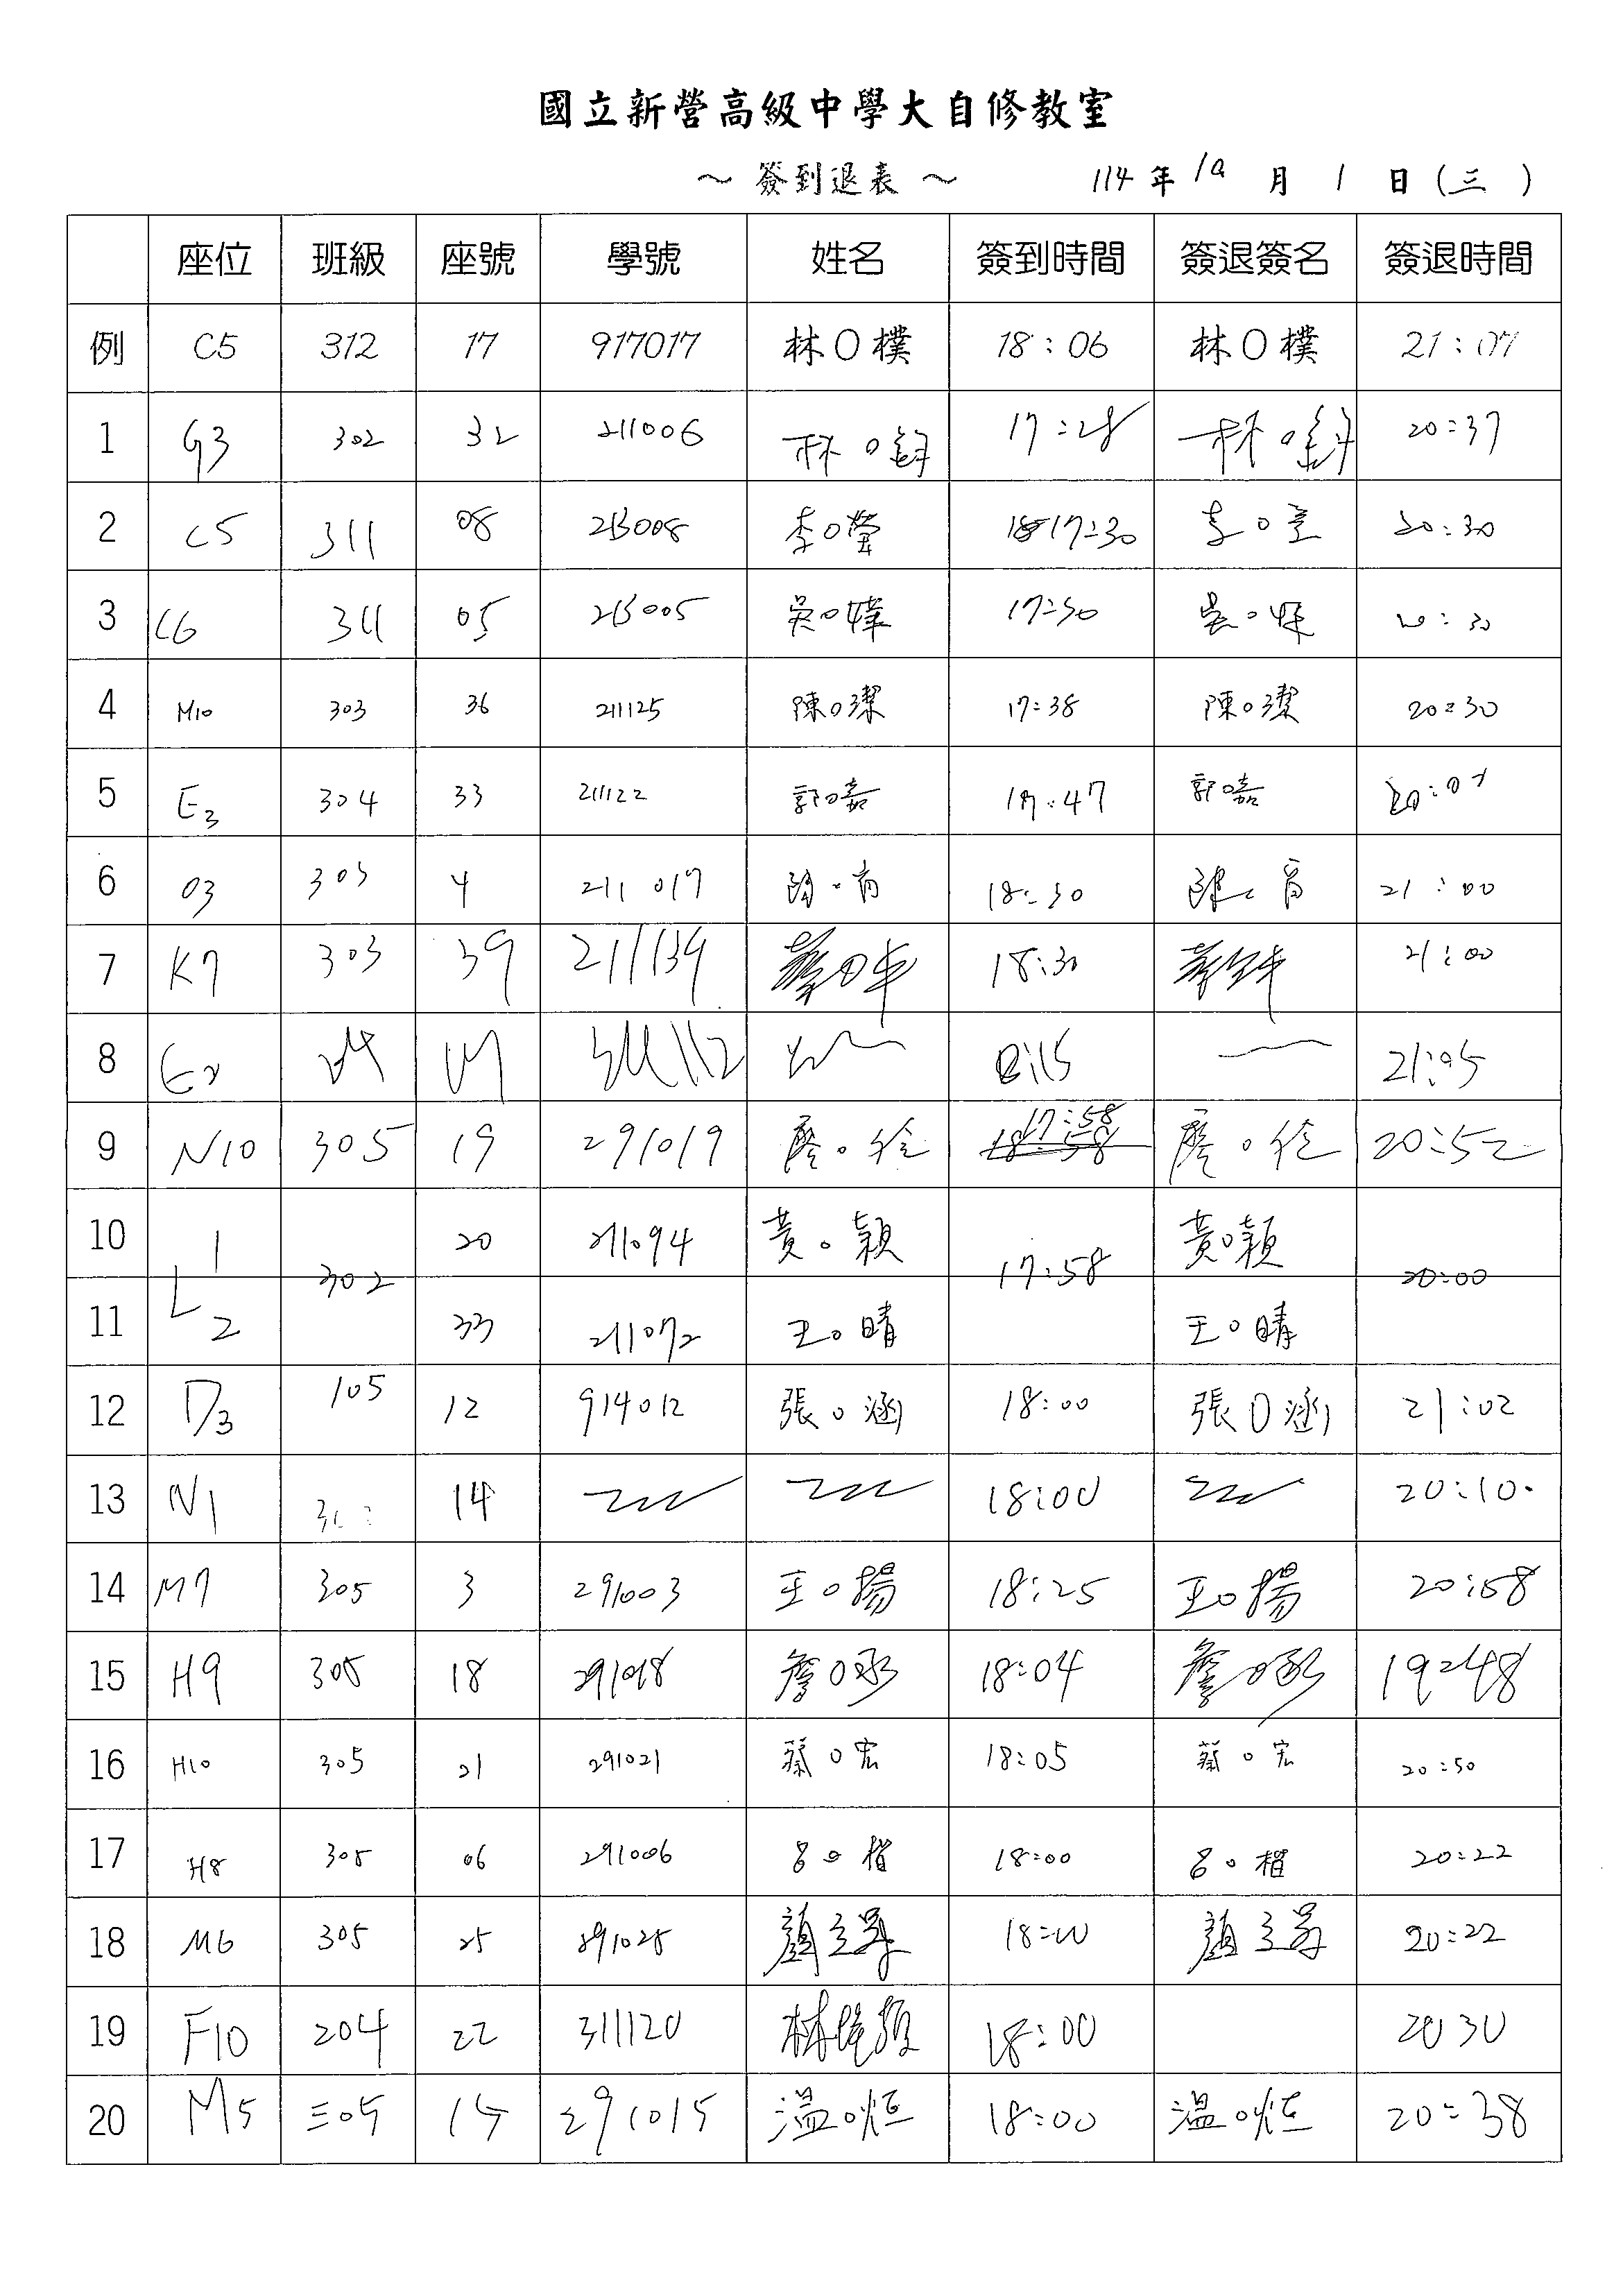 國立新營高級中學大自修教室
～ 簽到退表 ～ 114 年 10 月 1 日 (三)
座位 班級 座號 學號 姓名 簽到時間 簽退簽名 簽退時間
例 C5 312 17 917017 林O樸 18:06 林O樸 21:07
1 G3 302 32 211006 林O 17:28 林O 20:37
2 C5 311 08 213008 李O瑩 17:30 李O 20:30
3 C6 311 05 213005 吳O嬅 17:30 吳O 20:30
4 M10 303 36 211125 陳O潔 17:38 陳O潔 20:30
5 E3 304 33 211122 郭O嘉 17:47 郭O嘉 20:07
6 03 303 4 211017 18:30 21:00
7 K7 303 39 211139 18:30 21:00
8 21:05
9 N10 305 19 291019 17:58 20:52
10 L1 302 20 211094 黃O穎 17:58 黃O穎 20:00
11 L2 33 211072 王O晴 王O晴
12 D3 105 12 914012 張O涵 18:00 張O涵 21:02
13 N1 14 18:00 20:10
14 M7 305 3 291003 王O揚 18:25 王O揚 20:58
15 H9 305 18 291018 詹O丞 18:04 詹O丞 19:48
16 H10 305 21 291021 蔡O宏 18:05 蔡O宏 20:50
17 H8 305 06 291006 呂O楷 18:00 呂O楷 20:22
18 M6 305 25 291025 顏 18:00 顏 20:22
19 F10 204 22 311120 林 18:00 20 30
20 M5 三05 15 291015 溫O恒 18:00 溫O恒 20:38